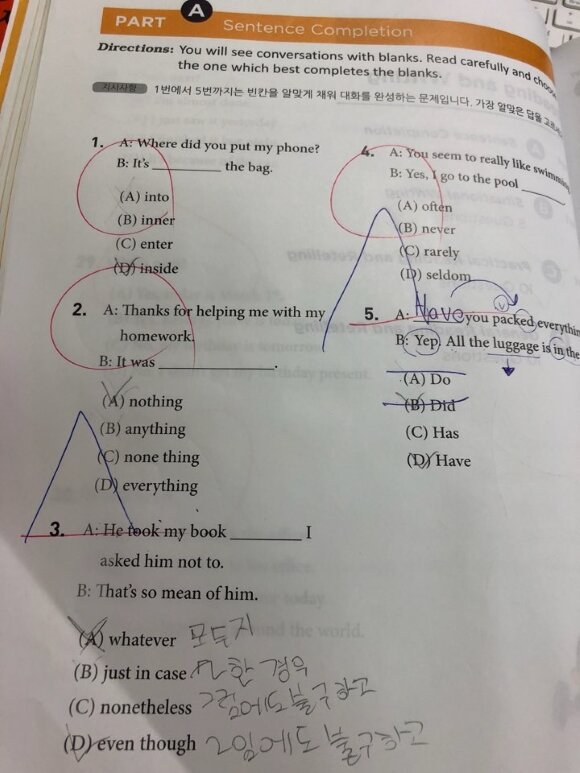 PART A Sentence Completion
Directions: You will see conversations with blanks. Read carefully and
the one which best completes the blanks.
지시사항 1번에서 5번까지는 빈칸을 알맞게 채워 대화를 완성하는 문제입니다. 가장 알맞은 답을
1. A: Where did you put my phone?
B: It's ________ the bag.
(A) into
(B) inner
(C) enter
(D) inside
2. A: Thanks for helping me with my
homework.
B: It was ________.
(A) nothing
(B) anything
(C) none thing
(D) everything
3. A: He took my book ________ I
asked him not to.
B: That's so mean of him.
(A) whatever 모두지
(B) just in case 한 경우
(C) nonetheless 그럼에도불구하고
(D) even though 에도 불구하고
4. A: You seem to really like
B: Yes, I go to the pool ________.
(A) often
(B) never
(C) rarely
(D) seldom
5. A: Have you packed
B: Yep. All the luggage is in the
(A) Do
(B) Did
(C) Has
(D) Have